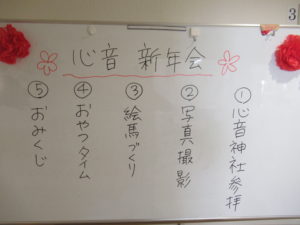 心音 新年会
①心音神社参拝
②写真撮影
③絵馬づくり
④おやつタイム
⑤おみくじ
3